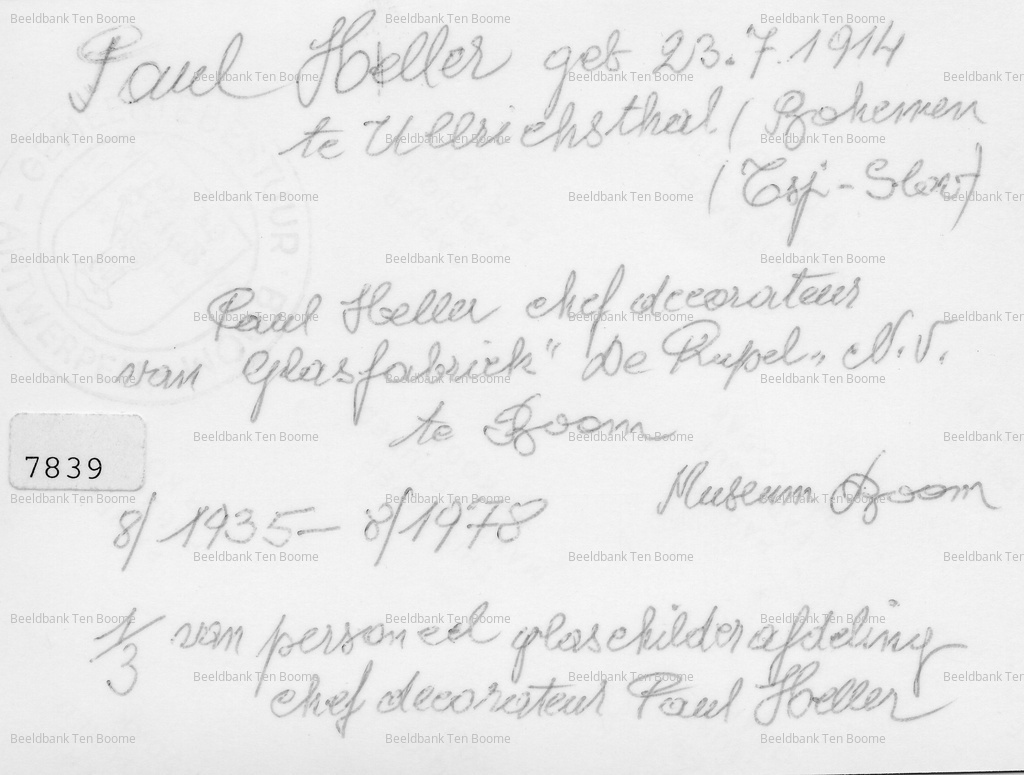 Paul Heller geb 23.7.1914
te Ullrichsthal / Bohemen
(Tsj-Slow)
Paul Heller chef decorateur
van Glasfabriek "De Rupel" N.V.
te Boom
7839
Museum Boom
8/1935 - 8/1978
1/3 van personeel glasschilderafdeling
chef decorateur Paul Heller
Beeldbank Ten Boome